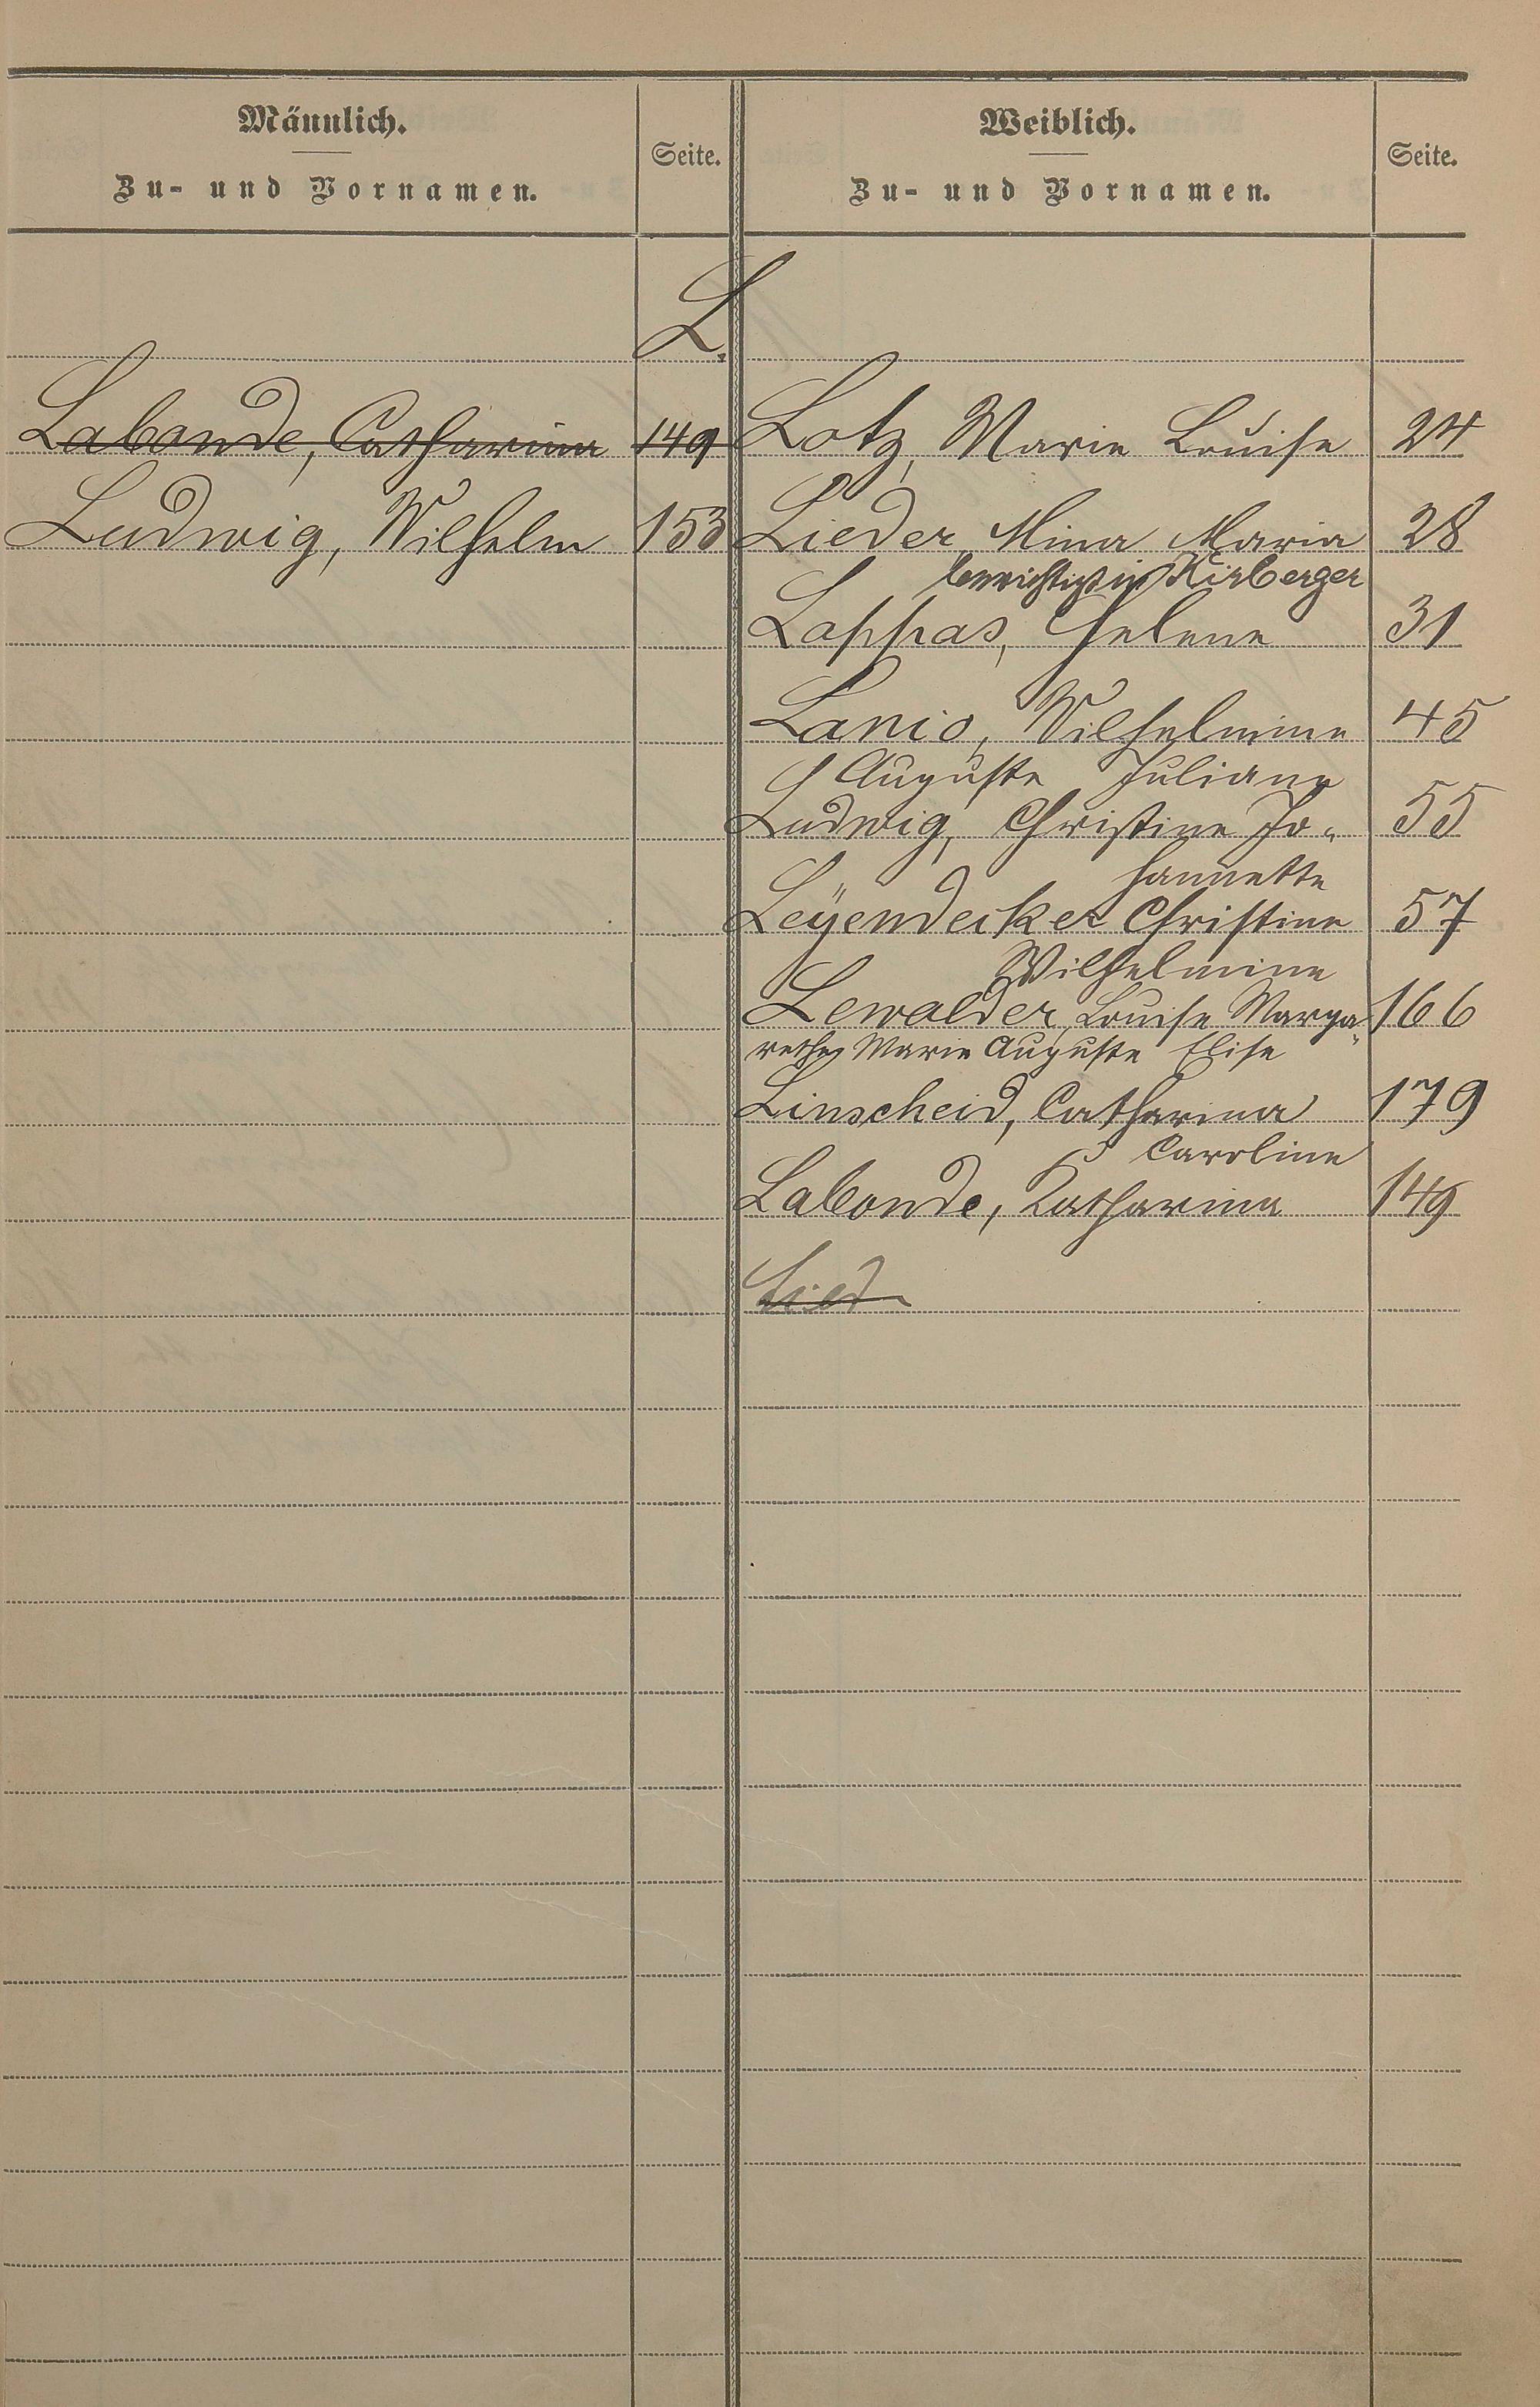 Männlich.
Zu- und Vornamen.
Seite.
Weiblich.
Zu- und Vornamen.
Seite.
L.
Labonde, Catharina 149
Ludwig, Wilhelm 153
Lotz, Marie Louise 24
Lieder, Mina Maria 28
berichtigt in Kirberger
Lappas, Helene 31
Lanio, Wilhelmine 45
Auguste Juliane
Ludwig, Christine Jo- 55
hannette
Leÿendecker Christine 57
Wilhelmine
Lewalder, Louise Marga- 166
rethe Marie Auguste Elise
Linscheid, Catharina 179
Caroline
Labonde, Katharina 149
Lied